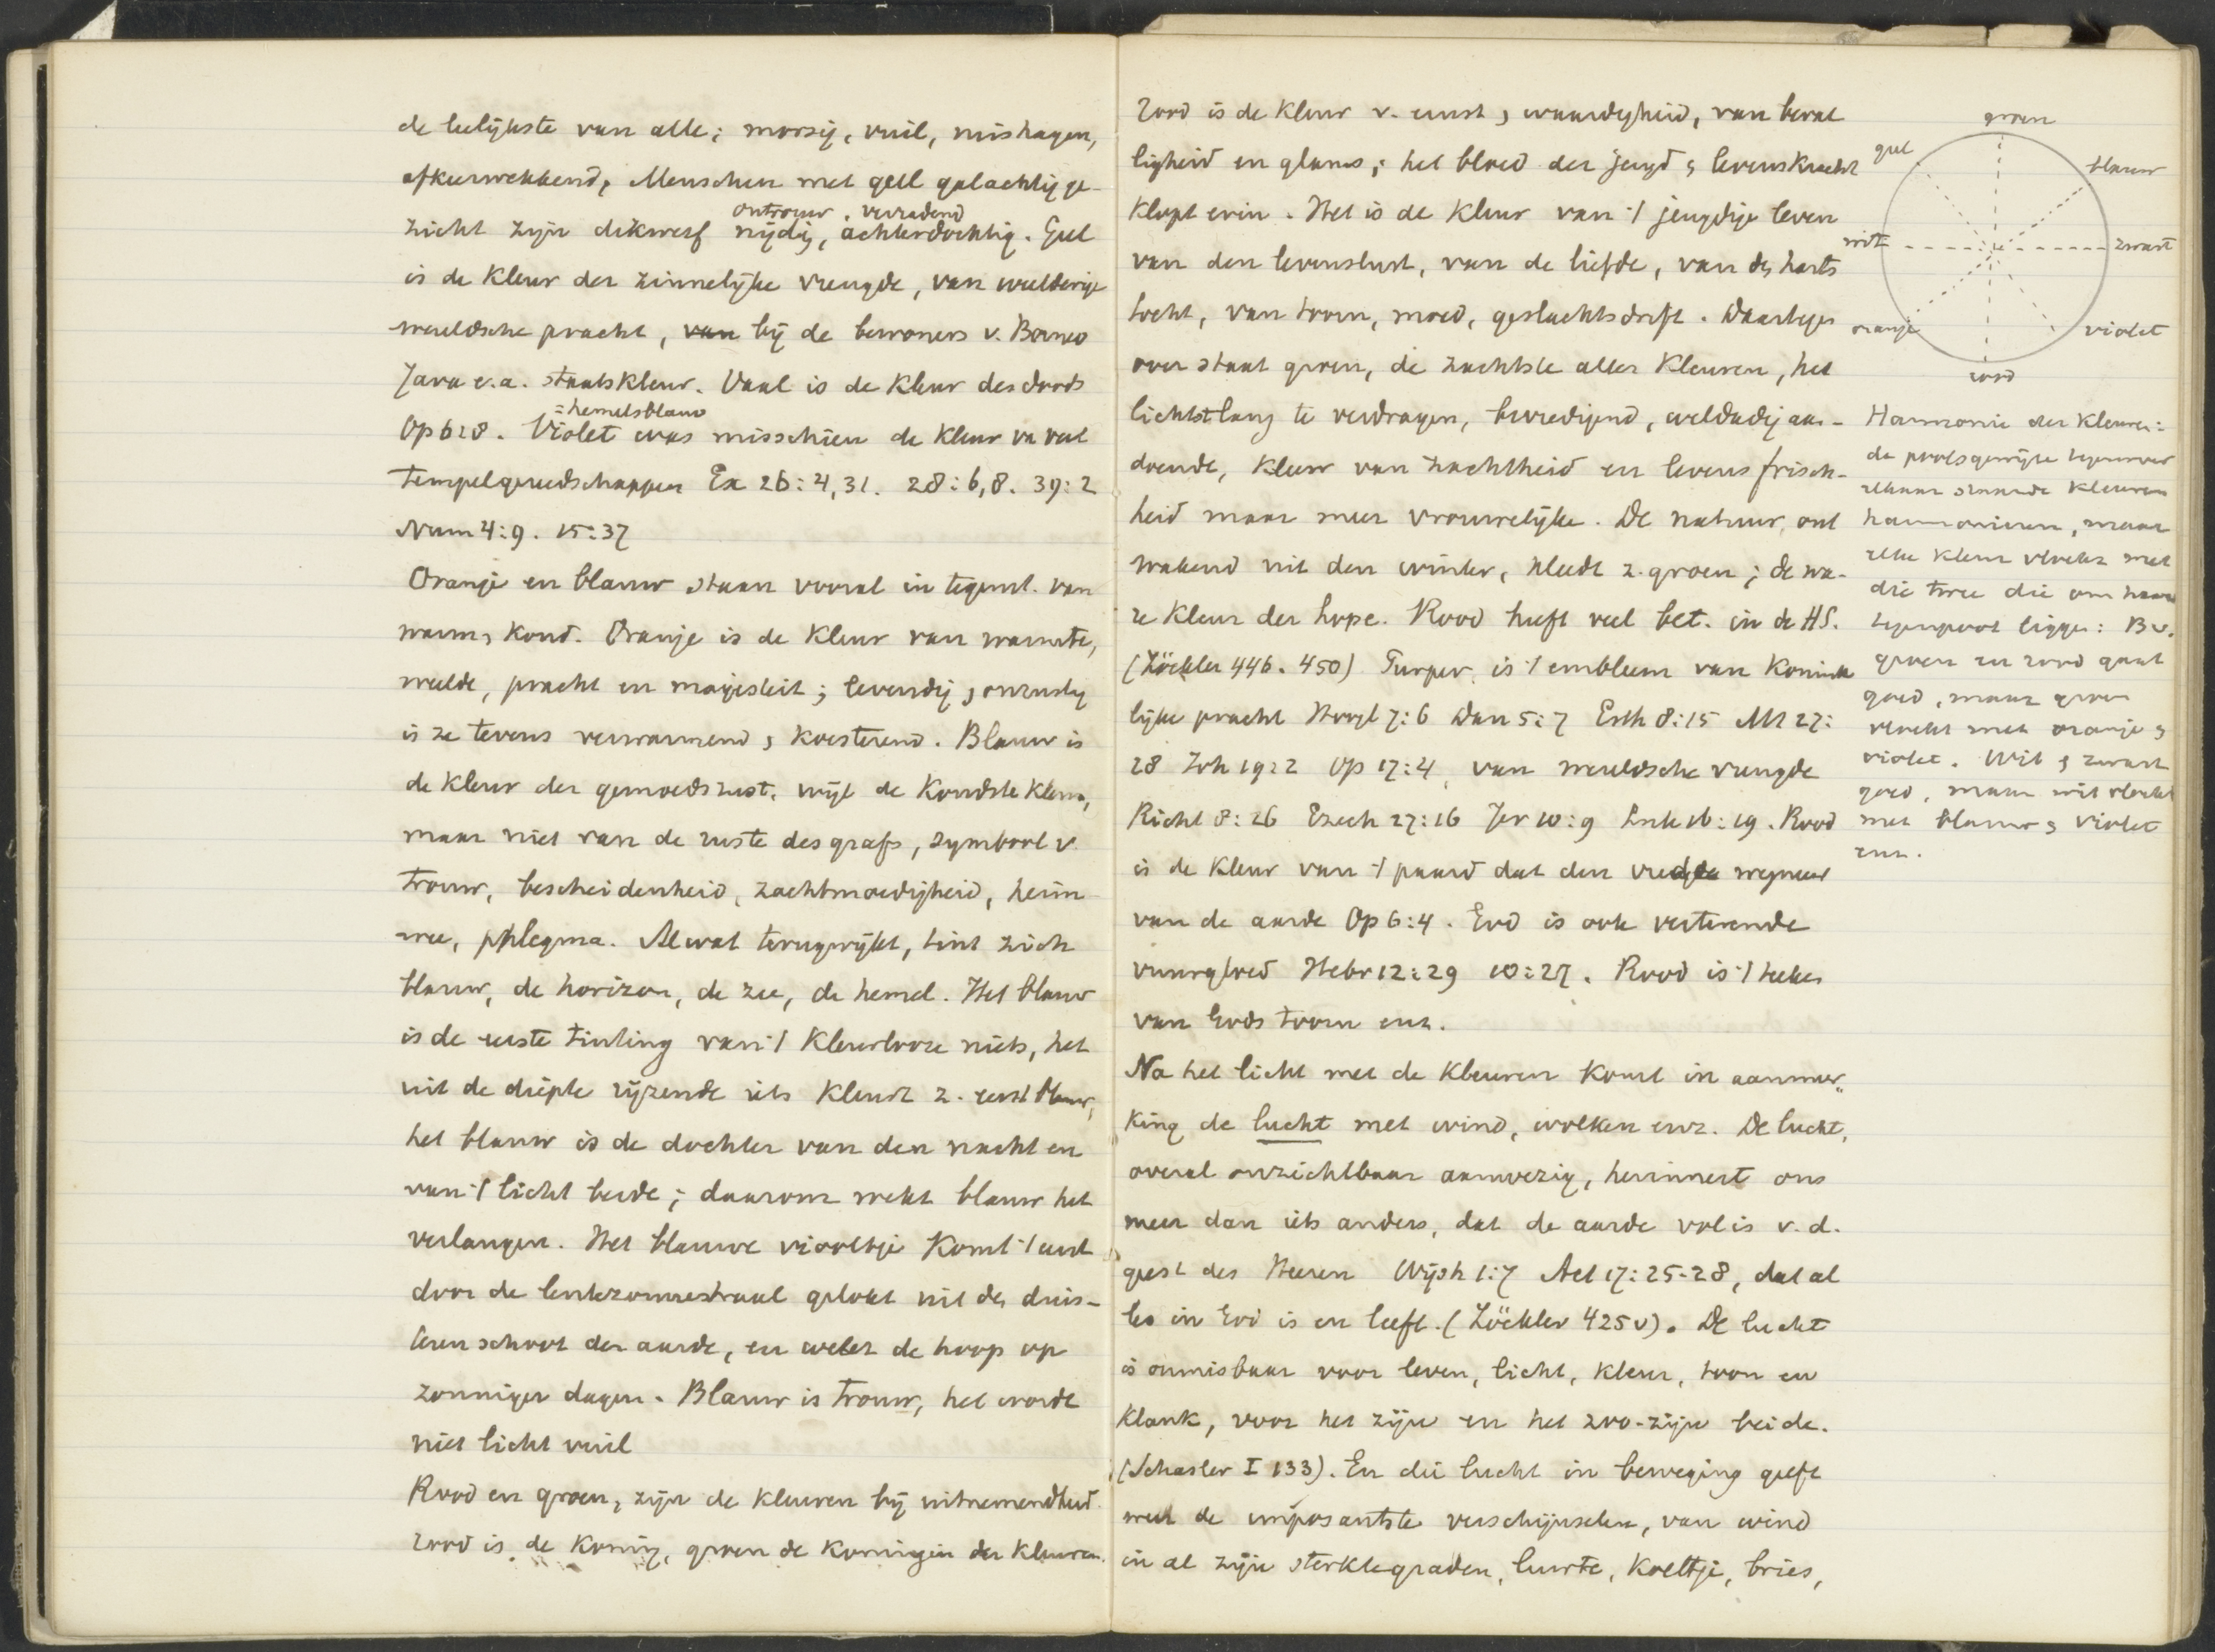 de leelijkste van alle; morsig, vuil, mishagen,
afkeerwekkend, Menschen met geel galachtig ge-
ontrouw, verradend
zicht zijn dikwerf nijdig, achterdochtig. Geel
is de kleur der zinnelijke vreugde, van weelderige
wereldsche pracht, van bij de bewoners v. Borneo
Java e.a. staatskleur. Vaal is de kleur des doods
= hemelsblauw
Op 6:8. Violet was misschien de kleur van veel
tempelgereedschappen Ex 26:4,31. 28:6,8. 39:2
Num 4:9. 15:37
Oranje en blauw staan vooral in tegenst. van
warm, koud. Oranje is de kleur van warmte,
weelde, pracht en majesteit; levendig, onrustig
is ze tevens verwarmend, koesterend. Blauw is
de kleur der gemoedsrust, wijl de koudste kleur,
maar niet van de ruste des grafs, symbool v.
trouw, bescheidenheid, zachtmoedigheid, heim-
wee, phlegma. Al wat terugwijkt, tint zich
blauw, de horizon, de zee, de hemel. Het blauw
is de eerste tinteling van 't kleurlooze niets, het
uit de diepte rijzende iets kleurt z. eerst blauw,
het blauw is de dochter van den nacht en
van 't licht beide; daarom wekt blauw het
verlangen. Het blauwe viooltje komt 't eerst
door de lentezonnestraal gelokt uit den duis-
teren schoot der aarde, en wekt de hoop op
zonniger dagen. Blauw is trouw, het wordt
niet licht vuil
Rood en groen, zijn de kleuren bij uitnemendheid.
rood is de koning, groen de koningin der kleuren.
rood is de kleur v. ernst, waardigheid, van beval
ligheid en glans; het bloed der jeugd, levenskracht
klopt erin. Het is de kleur van 't jeugdige leven
van den levenslust, van de liefde, van de harts
tocht, van toorn, moed, geslachtsdrift. Daartegen
over staat groen, de zachtste aller kleuren, het
lichtst lang te verdragen, bevredigend, weldadig aan-
doende, kleur van zachtheid en levensfrisch-
heid maar meer vrouwelijke. De natuur, ont
wakend uit den winter, kleedt z. groen; de wa-
re kleur der hope. Rood heeft veel bet. in de HS.
(Zöckler 446. 450) Purper is 't embleem van konink
lijke pracht Hoogl 7:6 Dan 5:7 Esth 8:15 Mt 27:
28 Joh 19:2 Op 17:4, van wereldsche vreugde
Richt 8:26 Ezech 27:16 Jer 10:9 Luk 16:19. Rood
is de kleur van 't paard dat den vrede wegneemt
van de aarde Op 6:4. God is ook verterende
vuurgloed Hebr 12:29 10:27. Rood is 't teeken
van Gods toorn enz.
Na het licht met de kleuren komt in aanmer-
king de lucht met wind, wolken enz. De lucht,
overal onzichtbaar aanwezig, herinnert ons
meer dan iets anders, dat de aarde vol is v. d.
geest des Heeren Wijsh 1:7 Act 17:25-28, dat al
les in God is en leeft. (Zöckler 425v). De lucht
is onmisbaar voor leven, licht, kleur, toon en
klank, voor het zijn en het zoo-zijn beide.
(Schasler I 133). En die lucht in beweging geeft
weer de imposantste verschijnselen, van wind
in al zijn sterktegraden, luwte, koeltje, bries,
groen
geel
blauw
wit
zwart
oranje
violet
rood
Harmonie der kleuren:
de poolsgewijze tegenover
elkaar staande kleuren
harmonieeren, maar
elke kleur vloekt met
die twee die om haar
tegenpool liggen: Bv.
groen en rood gaat
goed, maar groen
vloekt met oranje &
violet. Wit & zwart
goed, maar wit vloekt
met blauw & violet
enz.